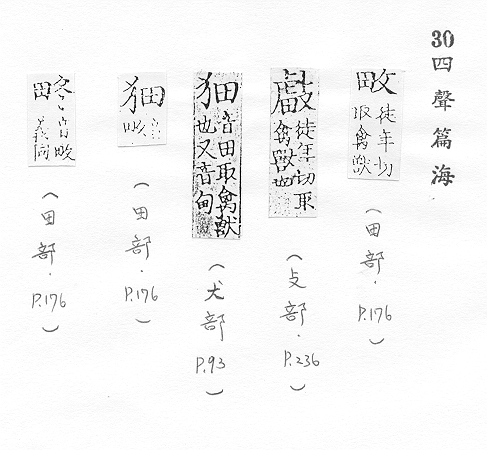 30四聲篇海
畋
徒年切
取禽獸
(田部.P.176)
徒年切取
禽獸也
(攴部.P.236)
音田取禽獸
也又音甸
(犬部.P.93)
音
畋
(田部.P.176)
音畋
義同
(田部.P.176)